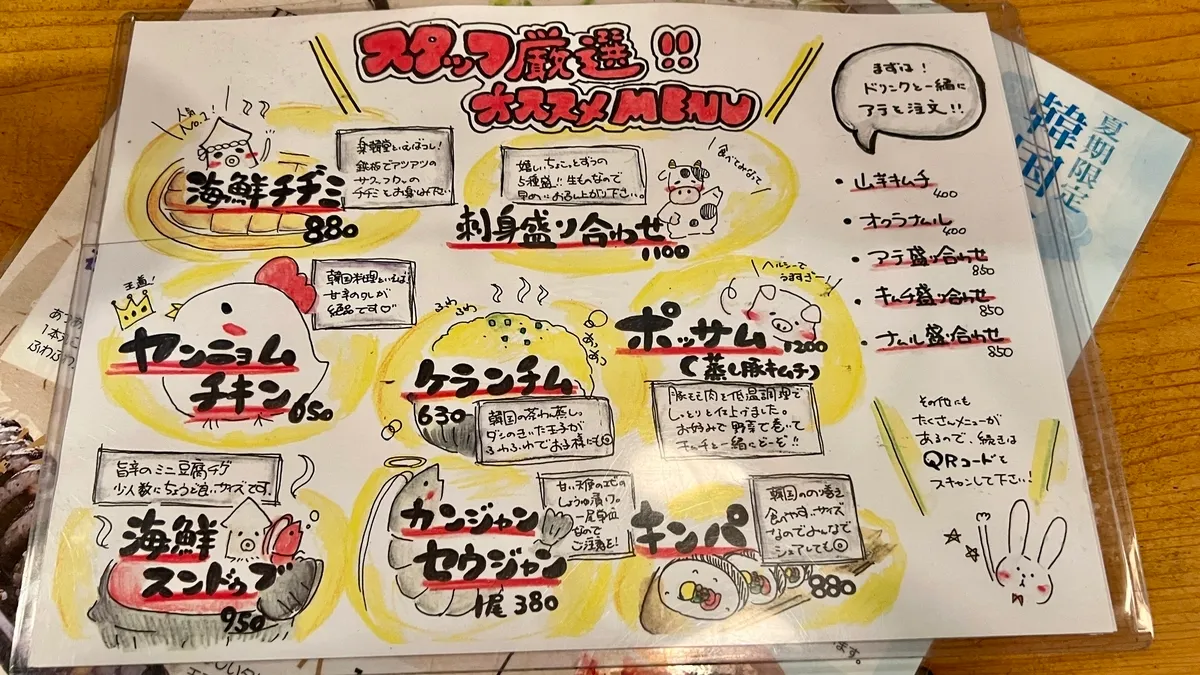 スタッフ厳選!!
オススメMENU
まずは!
ドリンクと一緒に
アテを注文!!
人気
No.1
海鮮チヂミ
880
楽韓堂といえばコレ!
鉄板でアツアツの
サクフワの
チヂミをお召み下さい
嬉しいちょこっとずつの
5種盛!!生ものなので
早めにお召し上がり下さい。
食べてみなって
刺身盛り合わせ
1100
・山芋キムチ
400
・オクラナムル
400
・アテ盛り合わせ
850
・キムチ盛り合わせ
850
・ナムル盛り合わせ
850
王道!
韓国料理といえば!
甘辛のタレが
絶品です♡
ヤンニョム
チキン 650
ふわふわ
ケランチム
630
韓国の茶わん蒸し。
ダシのきいた玉子が
ふわふわでお子様にも◎
ヘルシーで
うますぎー
ポッサム
1200
(蒸し豚キムチ)
豚もも肉を低温調理で
しっとりと仕上げました。
お好みで野菜で巻いて
キムチと一緒にどーぞ!!
旨辛のミニ豆腐チゲ
少人数にちょうど良いサイズです。
海鮮
スンドゥブ
950
カンジャン
セウジャン
1尾 380
甘い天使のエビの
しょうゆ漬け。
一尾単位
なので
ご注意を!
キンパ
880
韓国ののり巻き
食べやすいサイズ
なのでみんなで
シェアしても◎
その他にも
たくさんメニューが
あるので、続きは
QRコードを
スキャンして下さい!
夏期限定
韓国
ます。